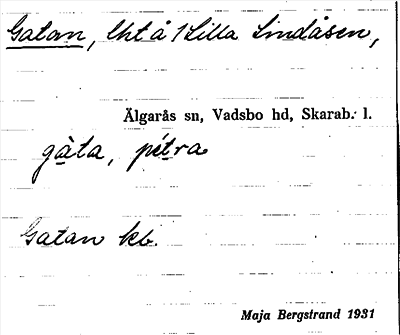 Gatan, lht å 1 Lilla Lindåsen,
Älgarås sn, Vadsbo hd, Skarab. l.
gàta, pétra
Gatan kb.
Maja Bergstrand 1931